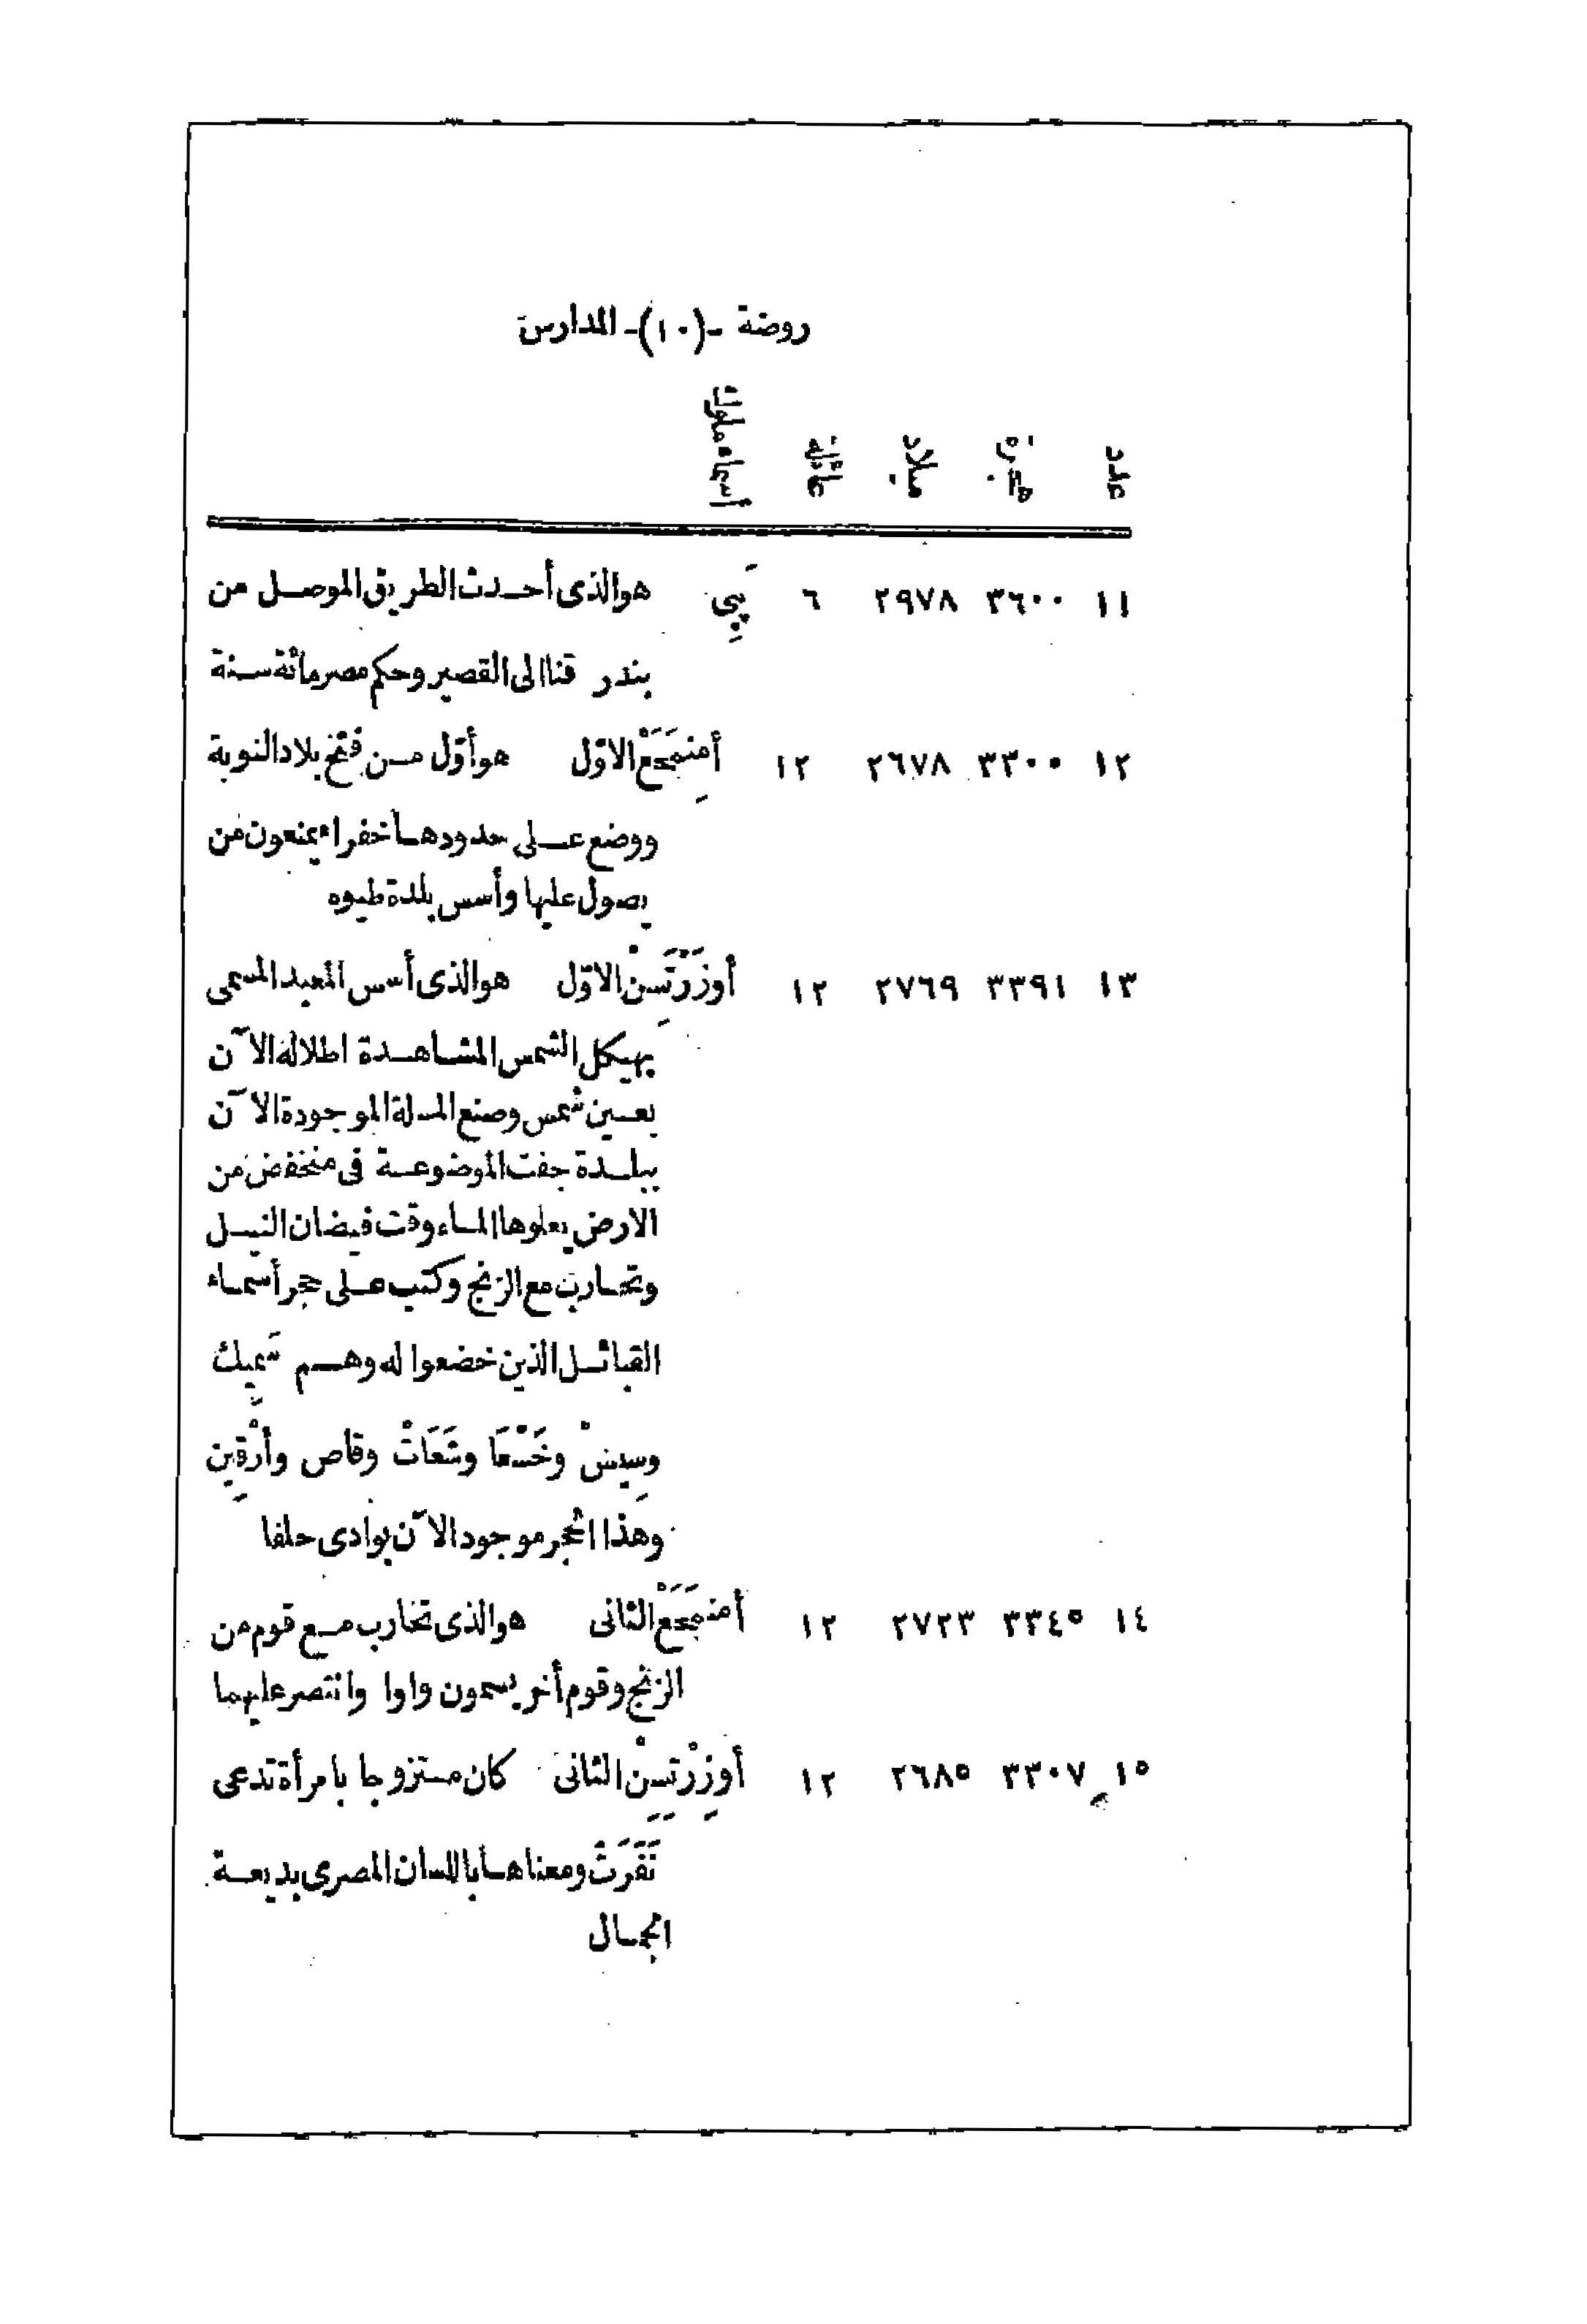 روضة -(١٠)- المدارس
عدد هجرة ميلاد عائلة أسماء ملوك
١١ ٣٦٠٠ ٢٩٧٨ ٦ پَپِى هو الذى أحدث الطريق الموصل من
بندر قنا الى القصير وحكم مصر مائة سنة
١٢ ٣٣٠٠ ٢٦٧٨ ١٢ أمنِمَحَعْ الاوّل هو أوّل من فتح بلاد النوبة
ووضع على حدودها خفراء يمنعون من
يصول عليها وأسس بلدة طيوه
١٣ ٣٣٩١ ٢٧٦٩ ١٢ أوزَرْتَسِنْ الاوّل هو الذى أسس المعبد المسمى
بهيكل الشمس المشاهدة اطلاله الآن
بعين شمس وصنع المسلة الموجودة الآن
ببلدة جفت الموضوعة فى منخفض من
الارض يعلوها الماء وقت فيضان النيل
وتحارب مع الزنج وكتب على حجر أسماء
القبائل الذين خضعوا له وهم شَمِيك
وسِيسْ وخَسْعَا وشَعَاتْ وقاص وأرْقِين
وهذا الحجر موجود الآن بوادى حلفا
١٤ ٣٣٤٥ ٢٧٢٣ ١٢ أمنِمَحَعْ الثانى هو الذى تحارب مع قوم من
الزنج وقوم أخر يسمون واوا وانتصر عليهما
١٥ ٣٣٠٧ ٢٦٨٥ ١٢ أوزِرْتِسِنْ الثانى كان متزوجا بامرأة تدعى
نَفَرَتْ ومعناها باللسان المصرى بديعة
الجمال